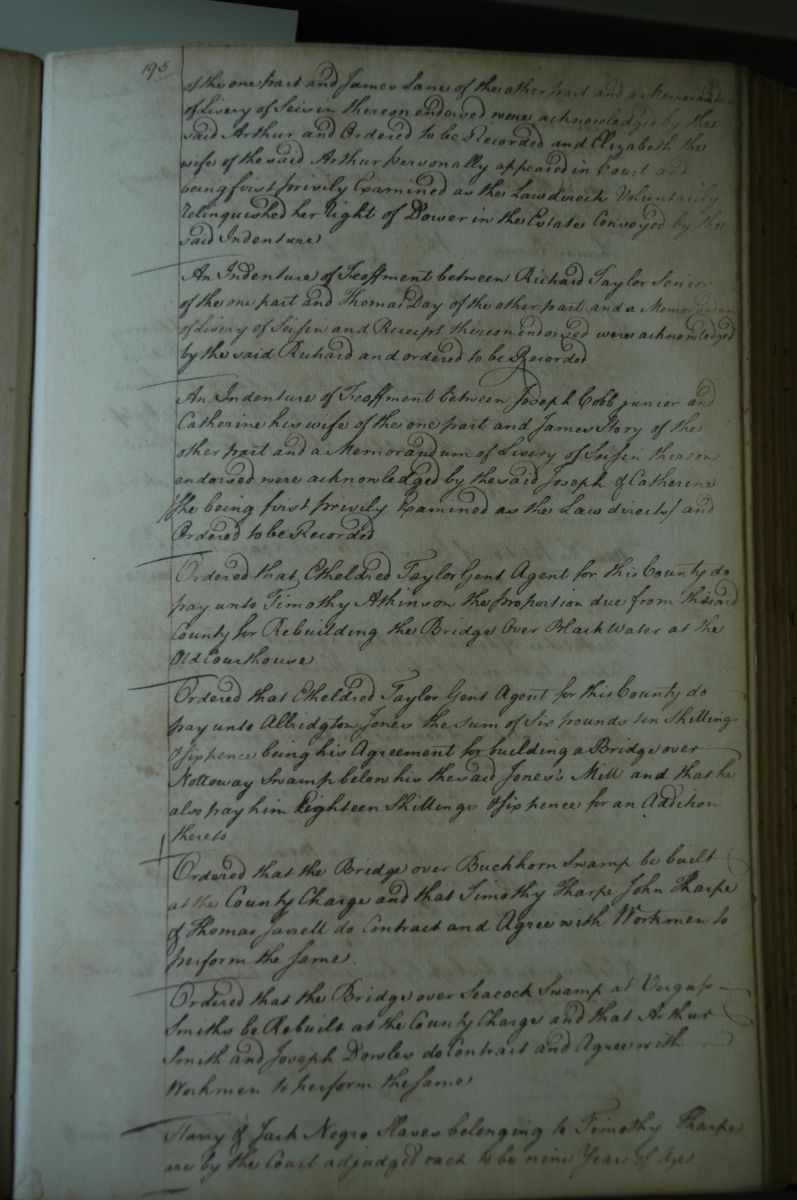 195
of the one part and James Lane of the other part and a Memorandum
of Livery of Seisin thereon endorsed were acknowledged by the
said Arthur and Ordered to be Recorded and Elizabeth the
wife of the said Arthur personally appeared in Court and
being first privily Examined as the Law directs Voluntarily
relinquished her right of Dower in the Estates Conveyed by the
said Indenture
An Indenture of Feoffment between Richard Taylor Senior
of the one part and Thomas Day of the other part and a Memorandum
of Livery of Seisen and Receipt thereon endorsed were acknowledged
by the said Richard and ordered to be Recorded
An Indenture of Feoffment between Joseph Cobb junior and
Catherine his wife of the one part and James Story of the
other part and a Memorandum of Livery of Seisin thereon
endorsed were acknowledged by the said Joseph & Catherine
/she being first privily Examined as the Law directs/ and
Ordered to be Recorded
Ordered that Etheldred Taylor Gent Agent for this County do
pay unto Timothy Atkinson the proportion due from the said
County for Rebuilding the Bridge Over Blackwater at the
Old Courthouse
Ordered that Etheldred Taylor Gent Agent for this County do
pay unto Albridgton Jones the sum of Six pounds ten Shillings
& sixpence being his Agreement for building a Bridge over
Nottoway Swamp below his the said Jones's Mill and that he
also pay him Eighteen Shillings & sixpence for an Addition
thereto
Ordered that the Bridge over Buckhorn Swamp be built
at the County Charge and that Timothy Tharpe John Tharpe
& Thomas Jarrell do Contract and Agree with Workmen to
perform the same.
Ordered that the Bridge over Seacock Swamp at
Smiths be Rebuilt at the County Charge and that Arthur
Smith and Joseph Dowles do Contract and Agree with
Workmen to perform the same
Harry & Jack Negro Slaves belonging to Timothy Tharpe
are by the Court adjudged each to be nine Years of Age